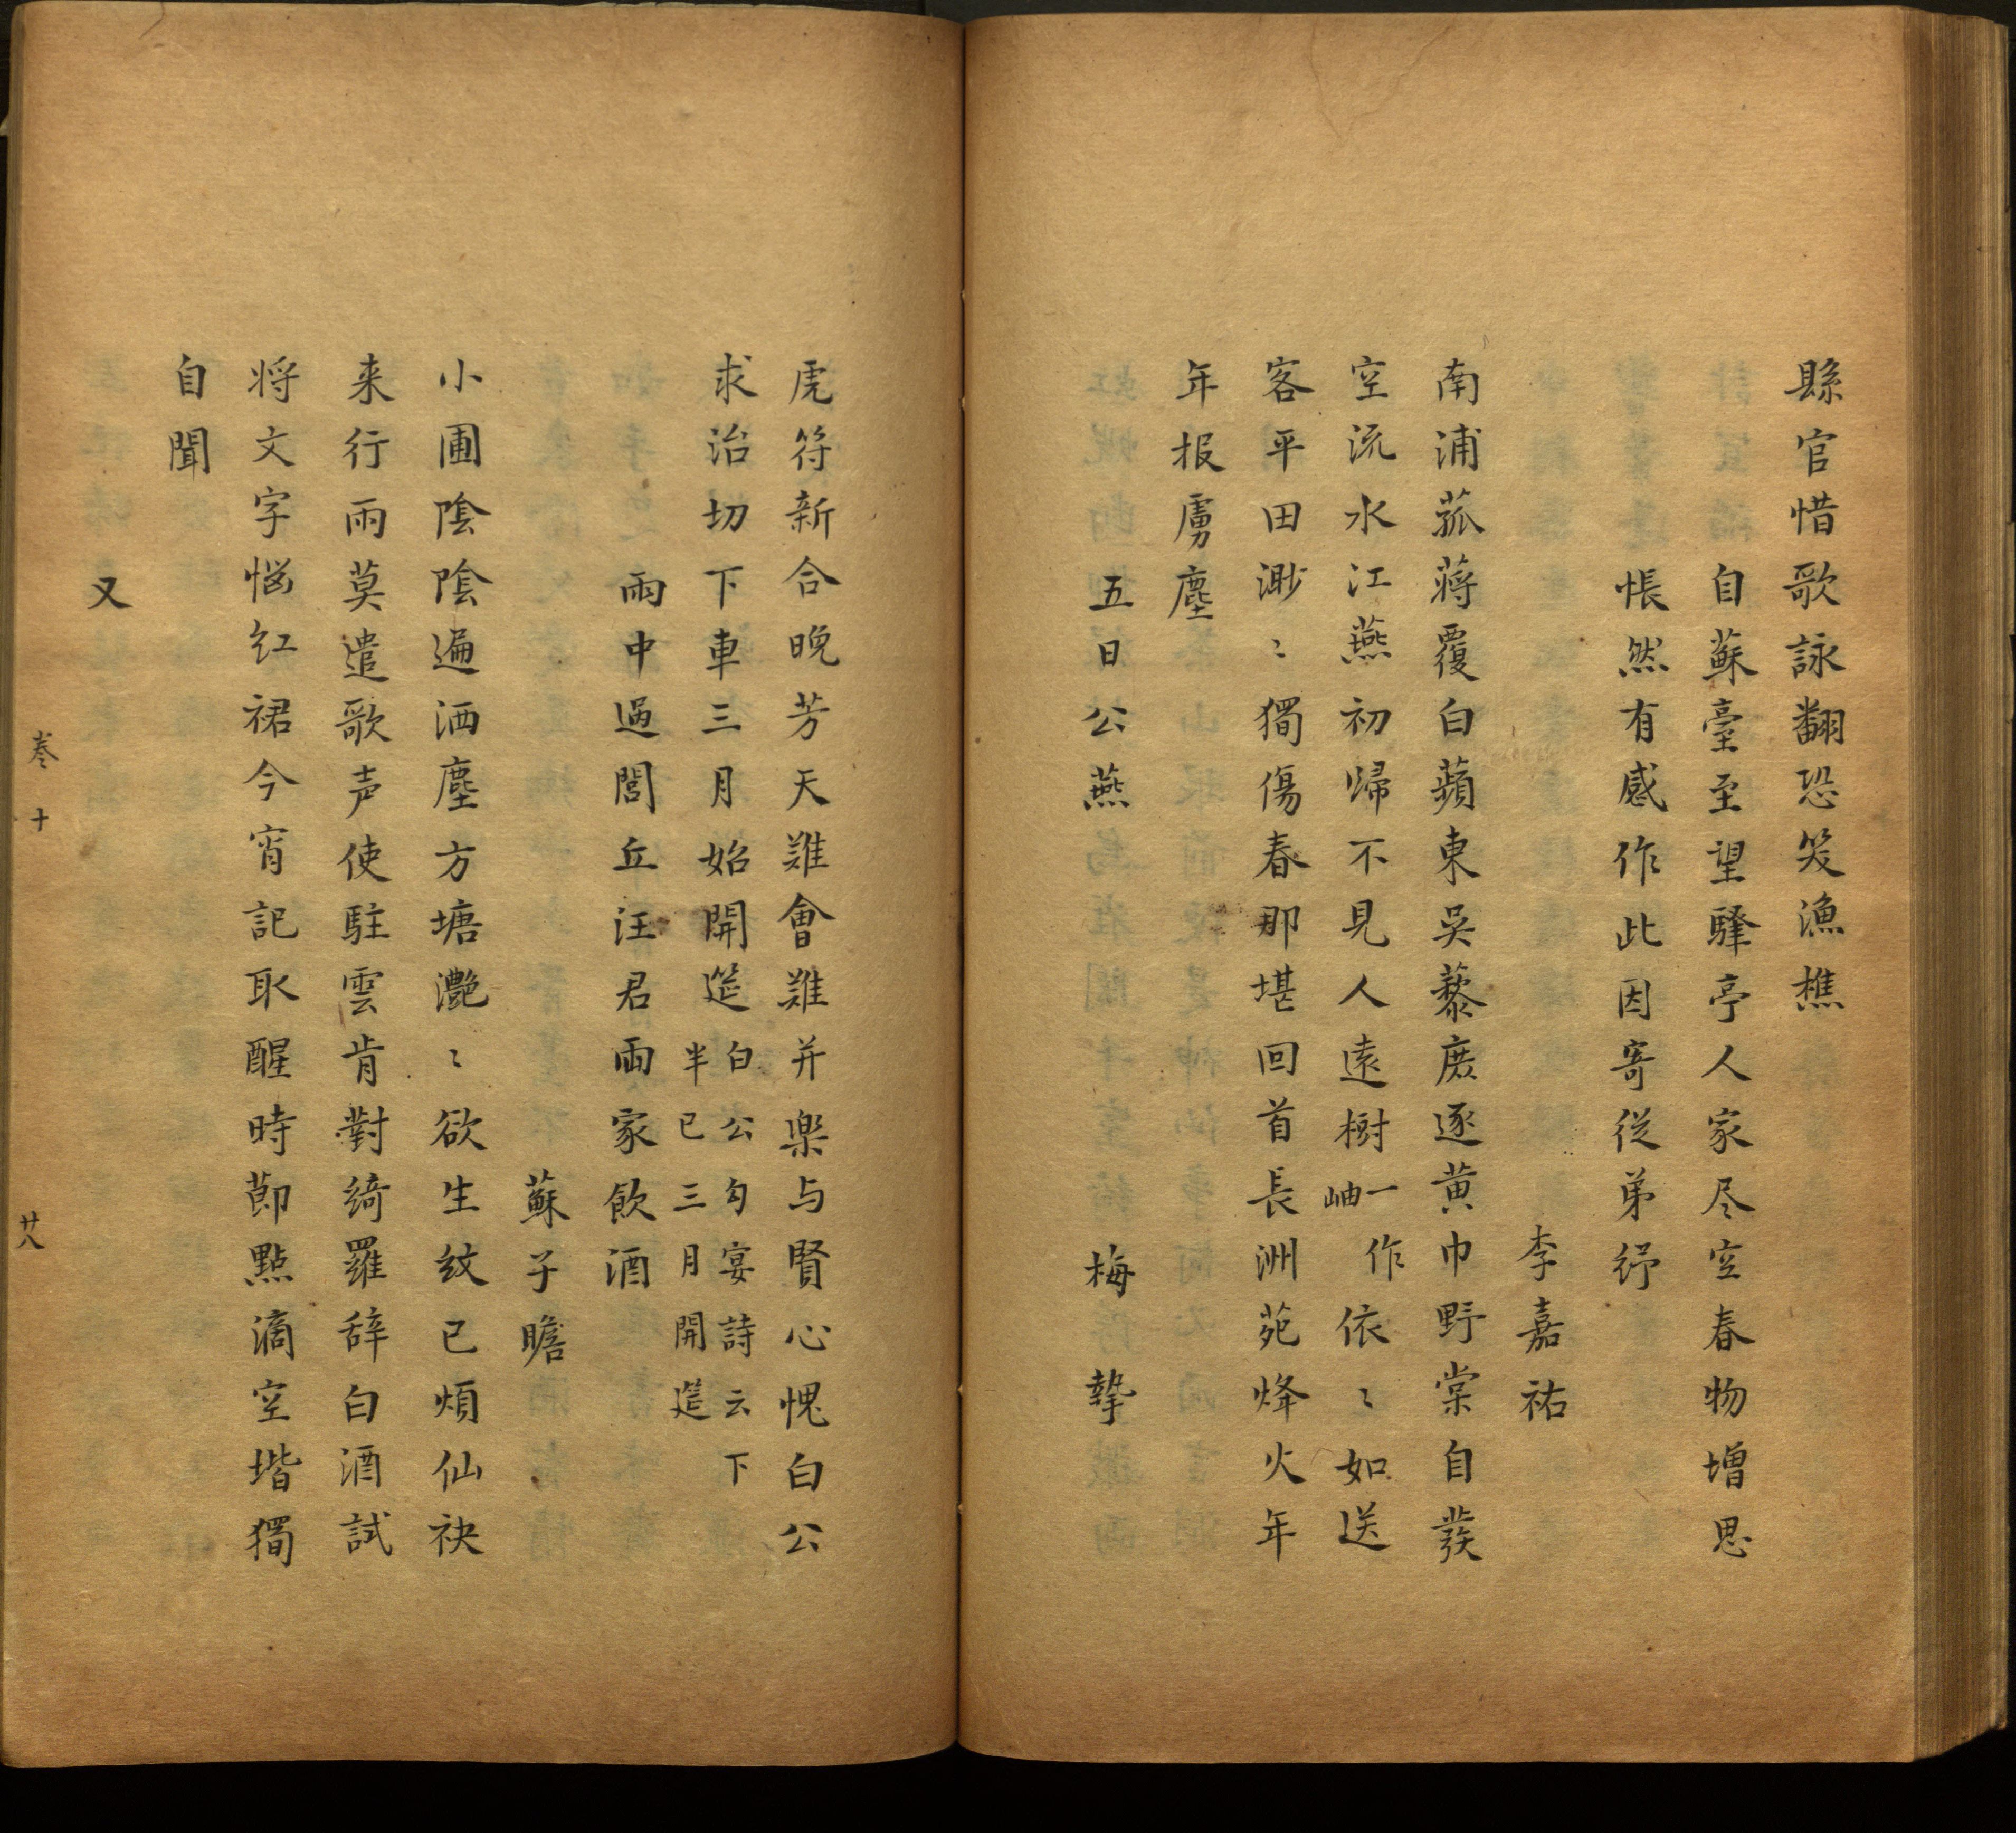 縣官惜歌詠翻恐笑漁樵
自蘇臺至望驛亭人家尽空春物增思
悵然有感作此因寄從弟紓
李嘉祐
南浦菰蔣覆白蘋東吳藜庶逐黄巾野棠自發
空流水江燕初歸不見人遠樹一作岫依〻如送
客平田渺〻獨傷春那堪回首長洲苑烽火年
年报虜塵
五日公燕
梅摯
虎符新合晚芳天難會難并樂与賢心愧白公
求治切下車三月始開筵白公勾宴詩云下
半已三月開筵
雨中過閭丘汪君兩家飲酒
蘇子瞻
小圃陰陰遍洒塵方塘灔〻欲生紋已煩仙袂
来行雨莫遣歌声使駐雲肯對綺羅辞白酒試
将文字惱红裙今宵記取醒時節點滴空堦獨
自聞
又
卷十
廿八